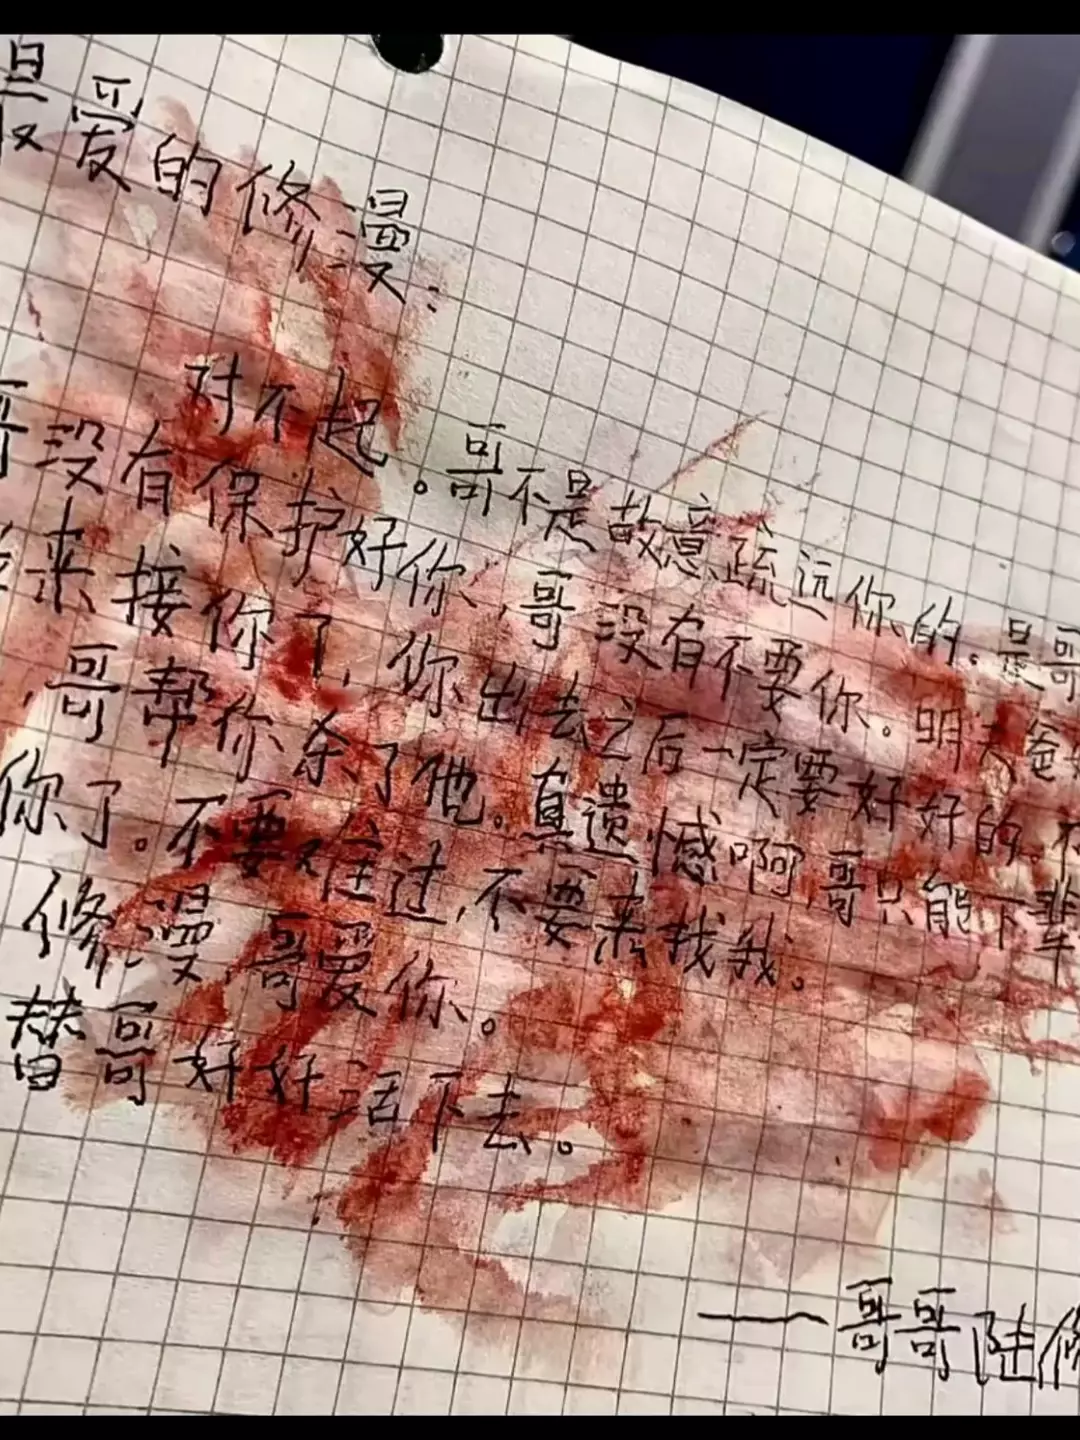 最爱的修漫：
对不起。哥不是故意疏远你的。是哥
哥没有保护好你，哥没有不要你。明天爸
来接你了，你出去之后一定要好好的。不
，哥帮你杀了他。真遗憾啊，哥只能下辈
你了。不要难过，不要来找我。
修漫，哥爱你。
替哥好好活下去。
——哥哥陆修